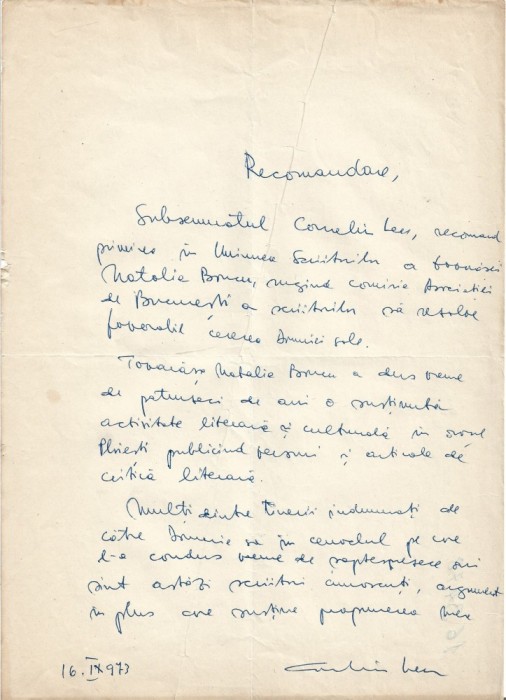 Recomandare,
Subsemnatul Corneliu Leu, recomand
primirea în Uniunea Scriitorilor a tovarășei
Natalia Brucu, rugînd Comisia Asociației
de București a scriitorilor să rezolve
favorabil cererea Domniei sale.
Tovarășa Natalia Brucu a dus vreme
de patruzeci de ani o susținută
activitate literară și culturală în orașul
Ploiești publicînd versuri și articole de
critică literară.
Mulți dintre tinerii îndemnați de
către Domnia sa în cenaclul pe care
l-a condus vreme de șaptesprezece ani
sînt astăzi scriitori cunoscuți, argument
în plus care susține propunerea mea
16.IX 973